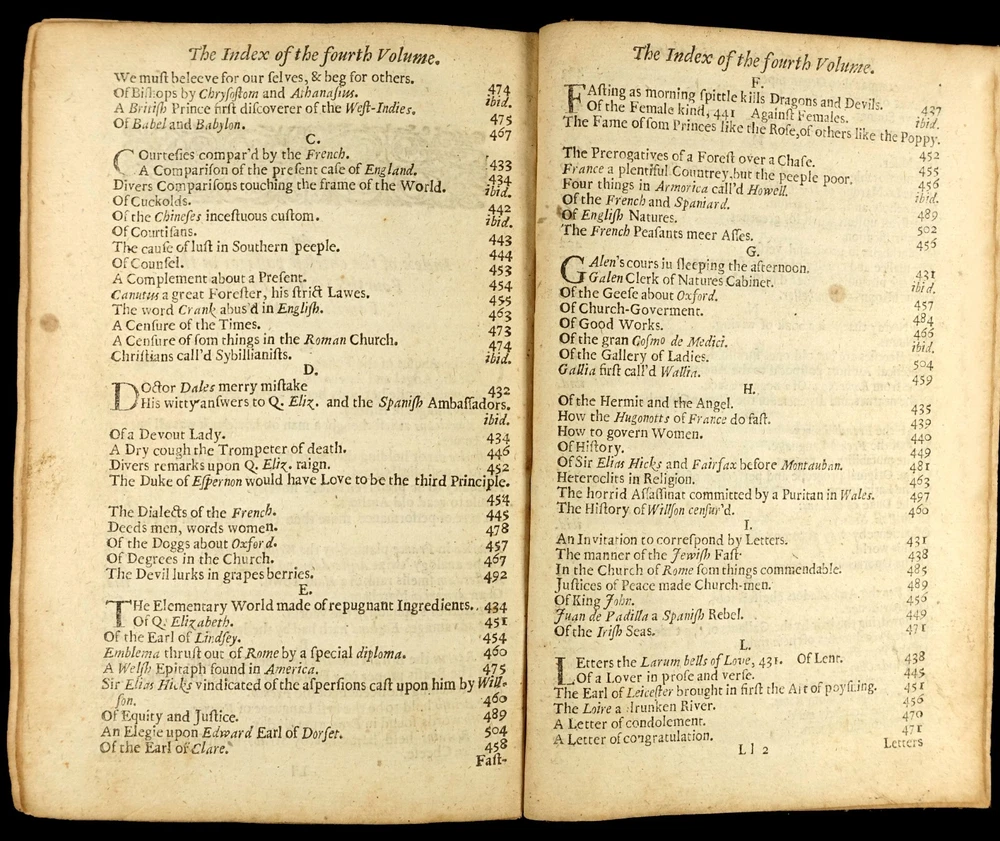 The Index of the fourth Volume.
We muſt beleeve for our ſelves, & beg for others.
Of Biſhops by Chryſoſtom and Athanaſius. 474
A Britiſh Prince firſt diſcoverer of the Weſt-Indies. ibid.
Of Babel and Babylon. 475
467
C.
COurteſies compar'd by the French.
A Compariſon of the preſent caſe of England. 433
Divers Compariſons touching the frame of the World. 434
Of Cuckolds. ibid.
Of the Chineſes inceſtuous cuſtom. 442
Of Courtiſans. ibid.
The cauſe of luſt in Southern peeple. 443
Of Counſel. 444
A Complement about a Preſent. 453
Canutus a great Foreſter, his ſtrict Lawes. 454
The word Crank abus'd in Engliſh. 455
A Cenſure of the Times. 463
A Cenſure of ſom things in the Roman Church. 473
Chriſtians call'd Sybillianiſts. 474
ibid.
D.
DOctor Dales merry miſtake 432
His witty anſwers to Q. Eliz. and the Spaniſh Ambaſſadors.
ibid.
Of a Devout Lady. 434
A Dry cough the Trompeter of death. 446
Divers remarks upon Q. Eliz. raign. 452
The Duke of Eſpernon would have Love to be the third Principle.
454
The Dialects of the French. 445
Deeds men, words women. 478
Of the Doggs about Oxford. 457
Of Degrees in the Church. 467
The Devil lurks in grapes berries. 492
E.
THe Elementary World made of repugnant Ingredients. 434
Of Q. Elizabeth. 451
Of the Earl of Lindſey. 454
Emblema thruſt out of Rome by a ſpecial diploma. 460
A Welſh Epitaph found in America. 475
Sir Elias Hicks vindicated of the aſperſions caſt upon him by Will-
ſon. 460
Of Equity and Juſtice. 489
An Elegie upon Edward Earl of Dorſet. 504
Of the Earl of Clare. 458
Faſt-
The Index of the fourth Volume.
F.
FAſting as morning ſpittle kills Dragons and Devils. 437
Of the Female kind, 441 Againſt Females. ibid.
The Fame of ſom Princes like the Roſe, of others like the Poppy.
452
The Prerogatives of a Foreſt over a Chaſe. 455
France a plentiful Countrey, but the peeple poor. 456
Four things in Armorica call'd Howell. ibid.
Of the French and Spaniard. 489
Of Engliſh Natures. 502
The French Peaſants meer Aſſes. 456
G.
GAlen's cours in ſleeping the afternoon. 431
Galen Clerk of Natures Cabinet. ibid.
Of the Geeſe about Oxford. 457
Of Church-Goverment. 484
Of Good Works. 466
Of the gran Coſmo de Medici. ibid.
Of the Gallery of Ladies. 504
Gallia firſt call'd Wallia. 459
H.
Of the Hermit and the Angel. 435
How the Hugonotts of France do faſt. 439
How to govern Women. 440
Of Hiſtory. 449
Of Sir Elias Hicks and Fairfax before Montauban. 481
Heteroclits in Religion. 463
The horrid Aſſaſſinat committed by a Puritan in Wales. 497
The Hiſtory of Willſon cenſur'd. 460
I.
An Invitation to correſpond by Letters. 431
The manner of the Jewiſh Faſt. 438
In the Church of Rome ſom things commendable. 485
Juſtices of Peace made Church-men. 489
Of King John. 456
Juan de Padilla a Spaniſh Rebel. 449
Of the Iriſh Seas. 471
L.
LEtters the Larum bells of Love, 431. Of Lent. 438
Of a Lover in proſe and verſe. 445
The Earl of Leiceſter brought in firſt the Art of poyſning. 451
The Loire a drunken River. 456
A Letter of condolement. 470
A Letter of congratulation. 471
Ll 2 Letters